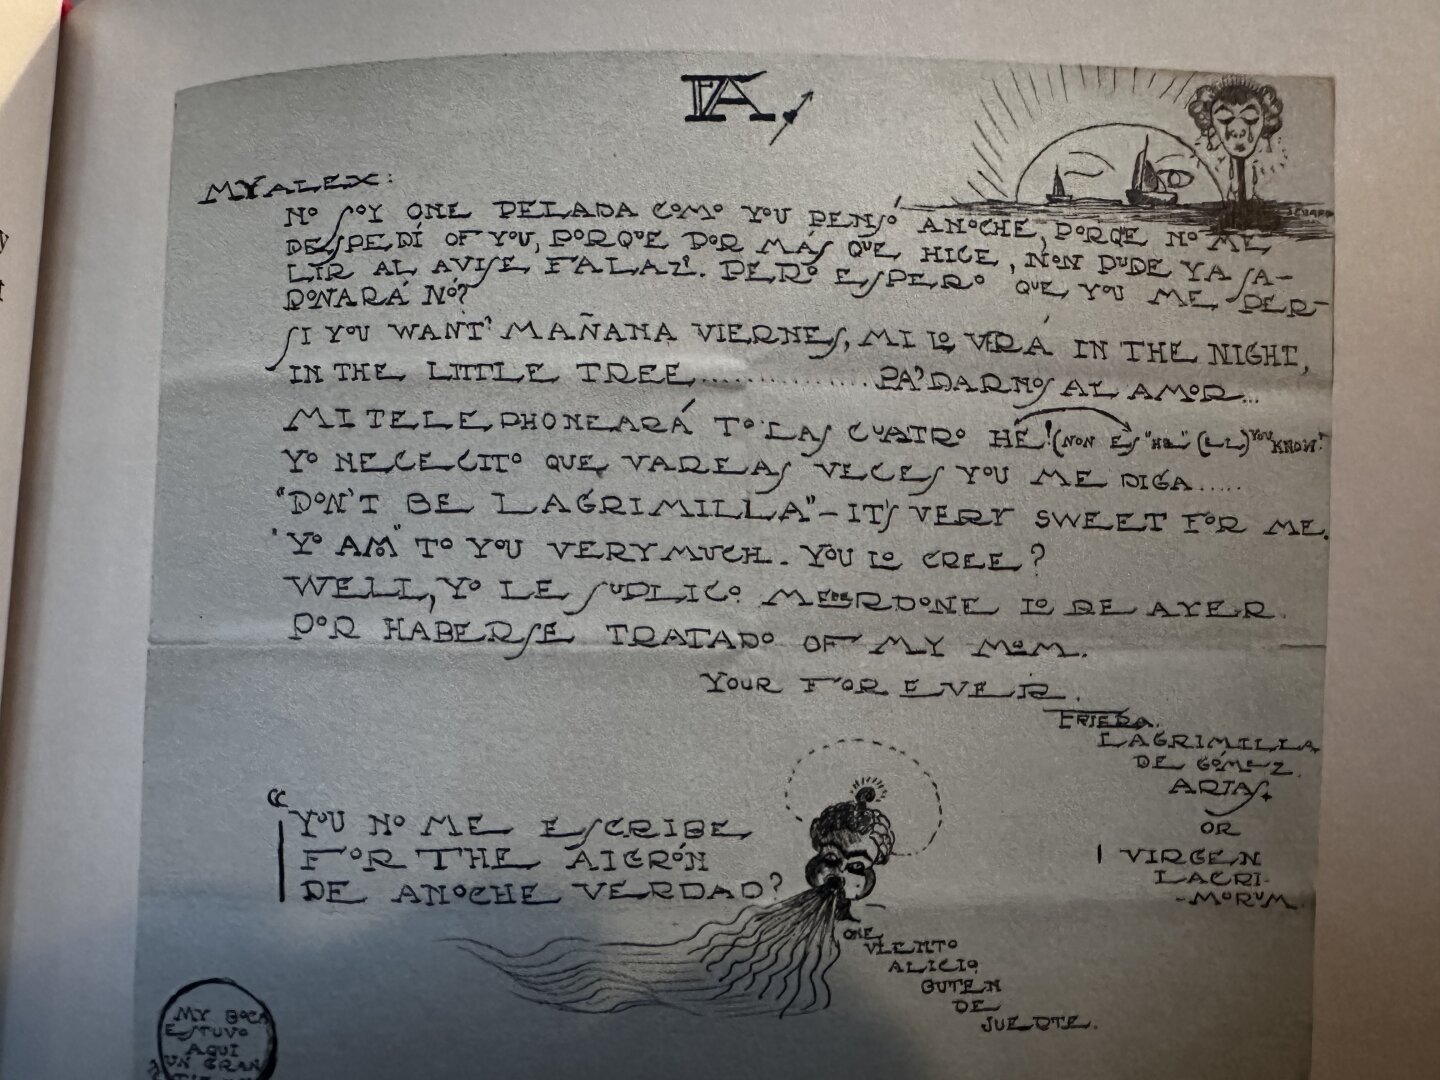 FA
MY ALEX:
NO SOY ONE PELADA COMO YOU PENSÓ ANOCHE, PORQE NO ME
DESPEDÍ OF YOU, PORQUE POR MÁS QUE HICE, NON PUDE YA SA-
LIR AL AVISE FALAZ!. PERO ESPERO QUE YOU ME PER-
DONARÁ NÓ?
SI YOU WANT MAÑANA VIERNES, MI LO VRÁ IN THE NIGHT,
IN THE LITTLE TREE............... PA' DARNOS AL AMOR...
MI TELEPHONEARÁ TO LAS CUATRO HÉ! (NON ES "HE" (LL) YOU KNOW!
YO NECECITO QUE VAREAS VECES YOU ME DIGA.....
"DON'T BE LAGRIMILLA" – IT'S VERY SWEET FOR ME.
"YO AM" TO YOU VERY MUCH. YOU LO CREE?
WELL, YO LE SUPLICO ME PERDONE LO DE AYER
POR HABERSE TRATADO OF MY MOM.
YOUR FOR EVER.
FRIEDA.
LAGRIMILLA
DE GÓMEZ
ARIAS.
OR
VIRGEN
LACRI-
-MORUM.
"YOU NO ME ESCRIBE
FOR THE AIGRÓN
DE ANOCHE VERDAD?
ONE
VIENTO
ALICIO
DE
JUERTE.
MY BOCA
ESTUVO
AQUI
UN GRAN